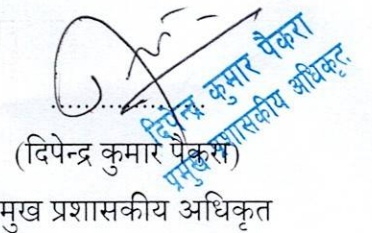 दिपेन्द्र कुमार पैकरा
प्रमुख प्रशासकीय अधिकृत
(दिपेन्द्र कुमार पैकरा)
मुख प्रशासकीय अधिकृत